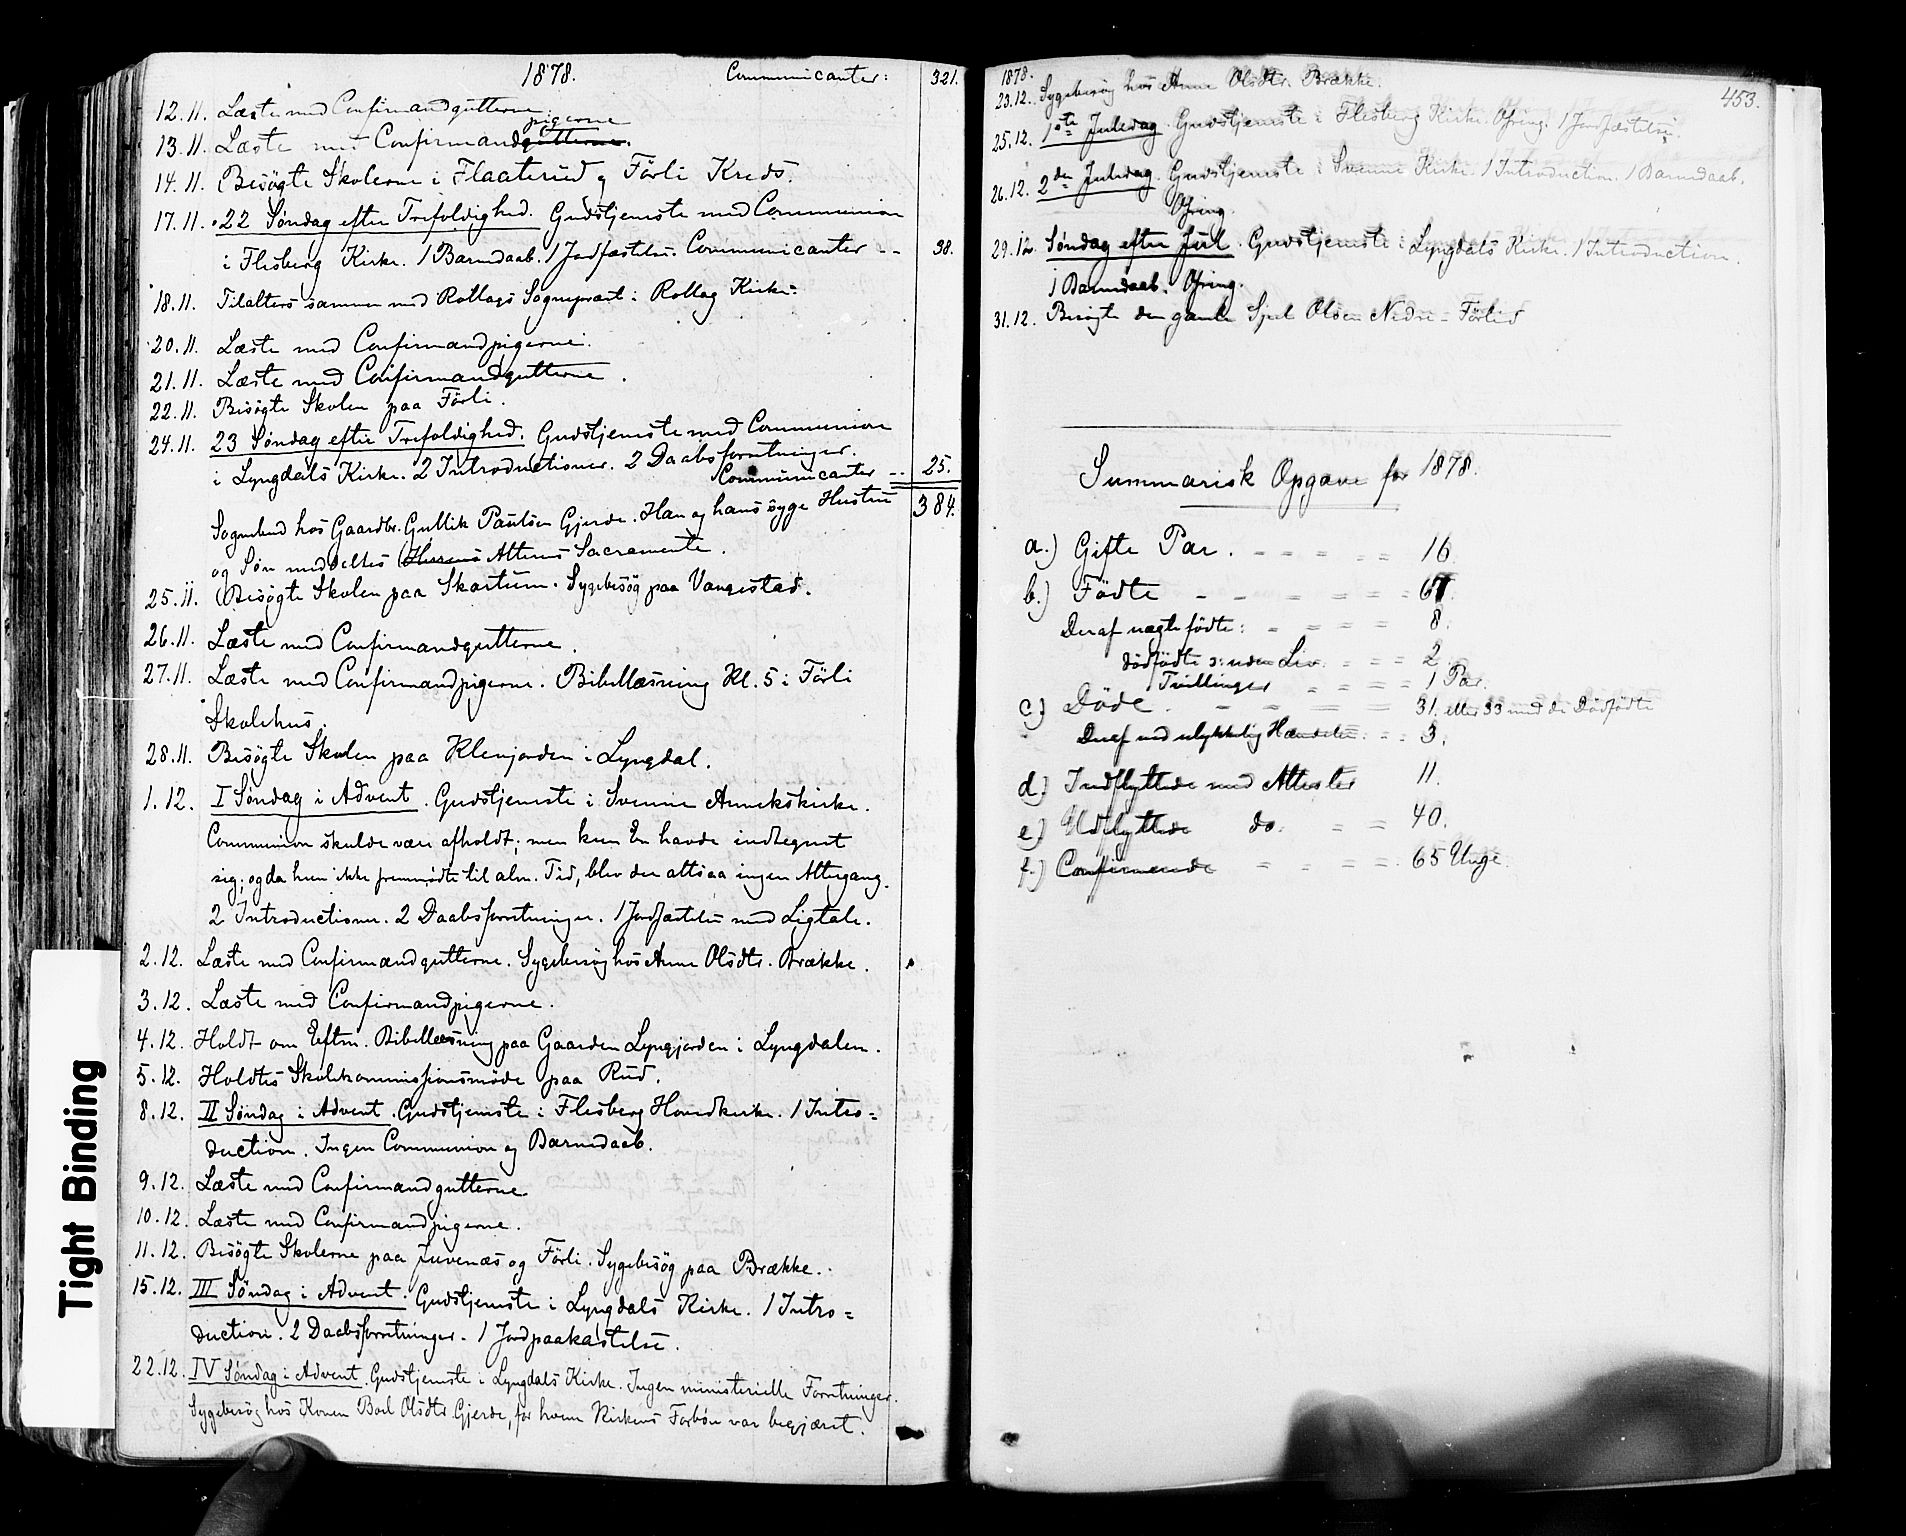 1878. Communicanter: 321.
12.11. Læste med Confirmandgutterne.
pigerne
13.11. Læste med Confirmandgutterne.
14.11. Besögte Skolerne i Flaaterud og Förli Kreds.
17.11. 22 Søndag efter Trefoldighed. Gudstjeneste med Communion
i Flesberg Kirke. 1 Barnedaab. 1 Jordfæstelse. Communicanter -- 38.
18.11. Tilalters sammen med Rollags Sognepræst i Rollag Kirke.
20.11. Læste med Confirmandpigerne.
21.11. Læste med Confirmandgutterne.
22.11. Besögte Skolen paa Förli.
24.11. 23 Søndag efter Trefoldighed. Gudstjeneste med Communion
i Lyngdals Kirke. 2 Introductioner. 2 Daabsforretninger.
Communicanter -- 25.
384.
Sognebud hos Gaardbr. Gullik Paulsen Gjerde. Han og hans syge Hustru
og Søn meddeltes Herrens Alterens Sacramente.
25.11. Besögte Skolen paa Skartum. Sygebesög paa Vangestad.
26.11. Læste med Confirmandgutterne.
27.11. Læste med Confirmandpigerne. Bibellæsning Kl. 5 i Förli
Skolehus.
28.11. Besögte Skolen paa Klevjorden i Lyngdal.
1.12. I Søndag i Advent. Gudstjeneste i Svenne Annekskirke.
Communion skulde være afholdt; men kun En havde indtegnet
sig; og da hun ikke fremmødte til alm. Tid, blev der altsaa ingen Altergang.
2 Introductioner. 2 Daabsforretninger. 1 Jordfæstelse med Ligtale.
2.12. Læste med Confirmandgutterne. Sygebesög hos Anne Olsdtr. Brække.
3.12. Læste med Confirmandpigerne.
4.12. Holdt om Eftm. Bibellæsning paa Gaarden Lyngjorden i Lyngdalen.
5.12. Holdtes Skolekommissionsmøde paa Rud.
8.12. II Søndag i Advent. Gudstjeneste i Flesberg Hovedkirke. 1 Intro=
duction. Ingen Communion og Barnedaab.
9.12. Læste med Confirmandgutterne
10.12. Læste med Confirmandpigerne.
11.12. Besögte Skolerne paa Juvenæs og Förli. Sygebesög paa Brække.
15.12. III Søndag i Advent. Gudstjeneste i Lyngdals Kirke. 1 Intro=
duction. 2 Daabsforretninger. 1 Jordpaakastelse.
22.12. IV Søndag i Advent. Gudstjeneste i Lyngdals Kirke. Ingen ministerielle Forretninger.
Sygebesög hos Konen Boel Olsdtr Gjerde, for hvem Kirkens Forbön var begjæret.
Tight Binding
1878.
453.
23.12. Sygebesög hos Anne Olsdtr. Brække.
25.12. 1ste Juledag. Gudstjeneste i Flesberg Kirke. Ofring. 1 Jordfæstelse.
26.12. 2den Juledag. Gudstjeneste i Svenne Kirke. 1 Introduction. 1 Barnedaab.
Ofring.
29.12. Søndag efter Jul. Gudstjeneste i Lyngdals Kirke. 1 Introduction.
1 Barnedaab. Ofring.
31.12. Besögte den gamle Sjul Olsen Nedre-Förlid
Summarisk Opgave for 1878.
a.) Gifte Par. - - = - = 16
b.) Födte - - - = = = = 67
Deraf uægte födte: = - = = 8.
dödfödte ɔ: uden Liv. - = = 2
Tvillinger - = = = 1 Par.
c.) Døde. - - = = = 31. eller 33 med de Dödfödte
Deraf ved ulykkelig Hændelse. - = 3.
d.) Indflyttede med Attester 11.
e.) Udflyttede do. = = 40.
f.) Confirmerede = - = = 65 Unge.